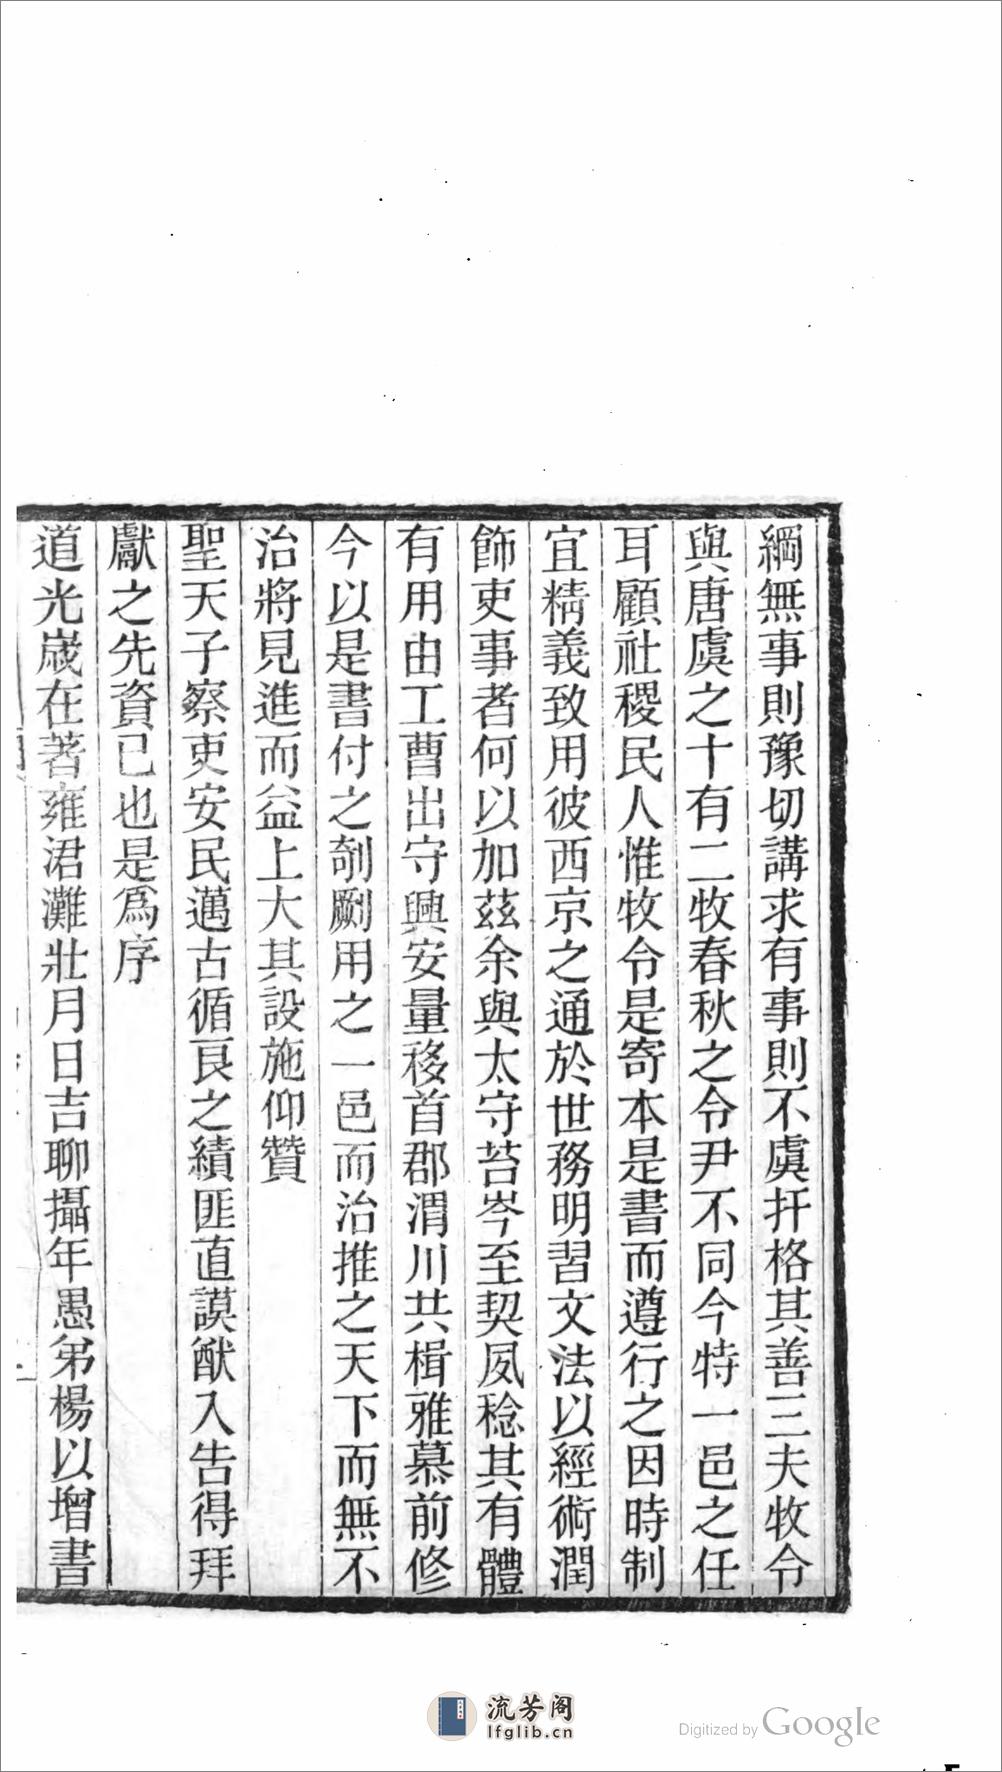 綱無事則豫切講求有事則不虞扞格其善三夫牧令
與唐虞之十有二牧春秋之令尹不同今特一邑之任
耳顧社稷民人惟牧令是寄本是書而遵行之因時制
宜精義致用彼西京之通於世務明習文法以經術潤
飾吏事者何以加茲余與太守苔岑至契夙稔其有體
有用由工曹出守興安量移首郡渭川共楫雅慕前修
今以是書付之剞劂用之一邑而治推之天下而無不
治將見進而益上大其設施仰贊
聖天子察吏安民邁古循良之績匪直謨猷入告得拜
獻之先資已也是爲序
道光嵗在著雍涒灘壯月日吉聊攝年愚弟楊以增書
流芳阁
lfglib.cn
Digitized by Google